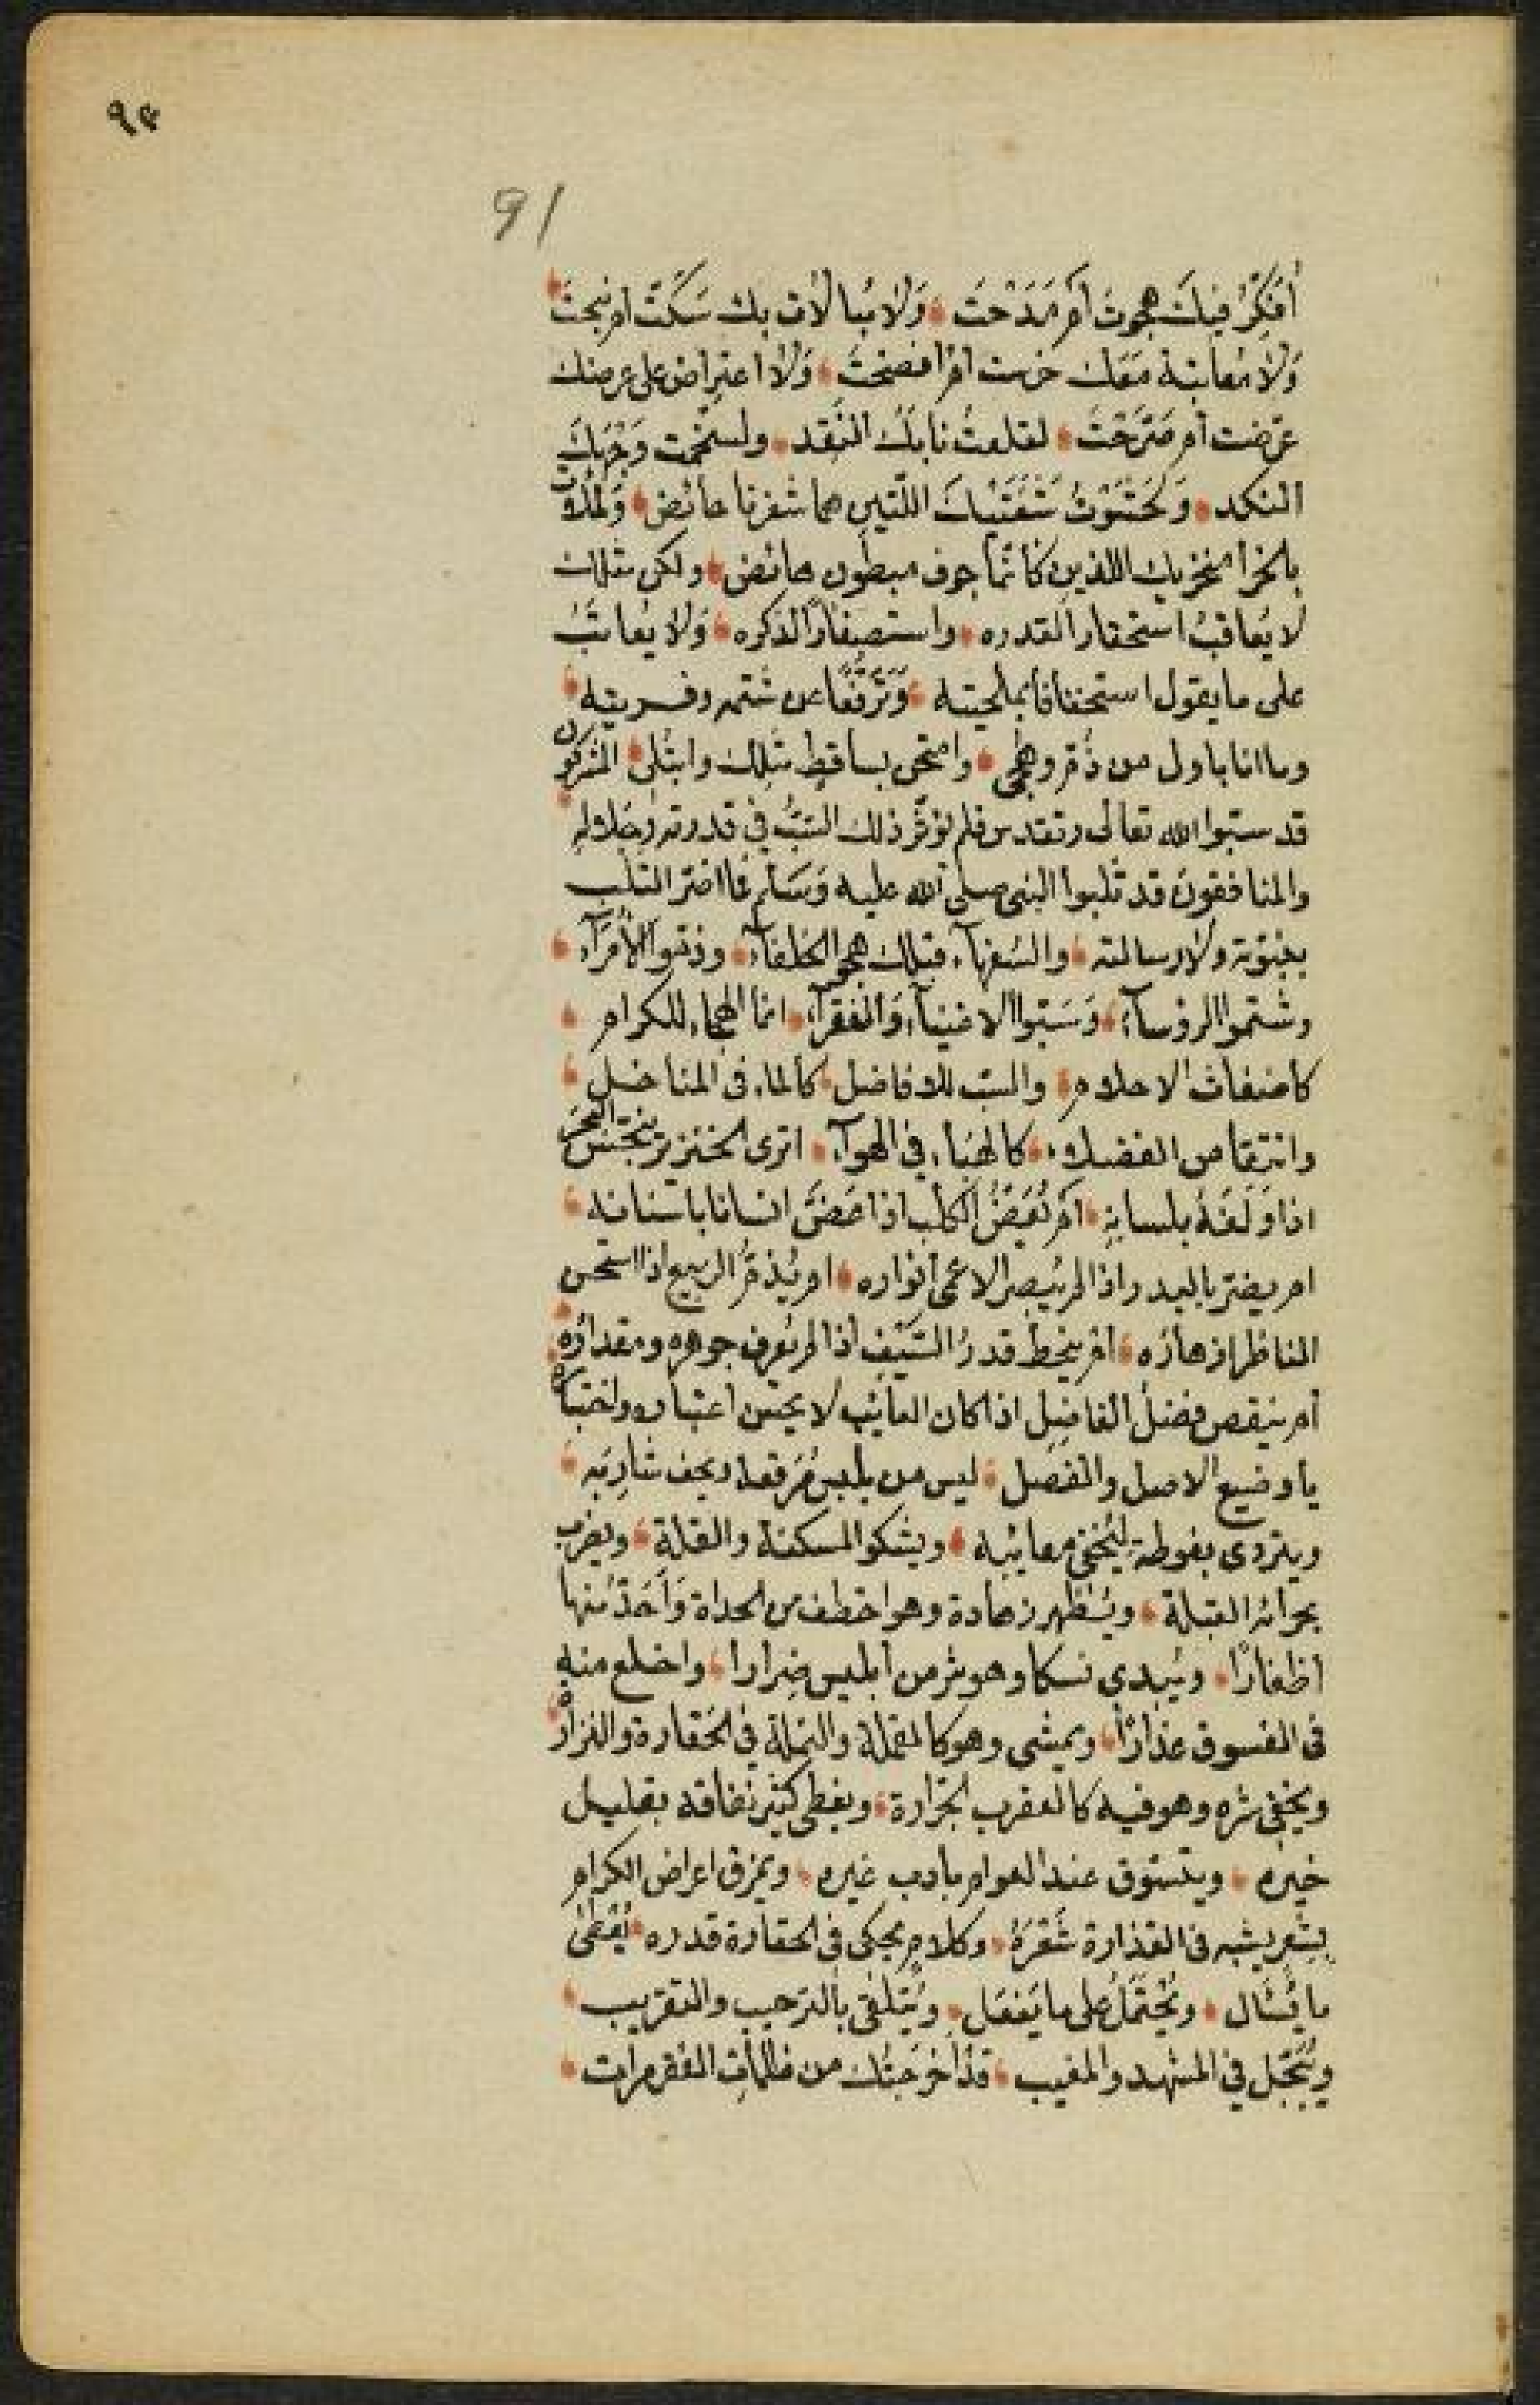 ٩٤
91
أُفَكِّرُ فيكَ هجوتَ أَم مَدَحْتَ وَلَا مُبالات بك سَكَتَّ أم نبحتَ
وَلَا مُعاتبة مَعَك خرست ام افصحتَ وَلَا اعتراض على عرضك
عرّضت أم صَرَّحْتَ لقلعتُ نابكَ النَقِد ولسخّمت وَجْهَكَ
النكد وَلحَشَوْتُ شَفَتَيْكَ اللّتين هما شفرتا حائض وَلملات
بالخرأ منخريك اللذين كأنّما جوف مبطون هائض ولكن مثلك
لا يُعاقبُ استحقاراً لقدره واستصغاراً لذكره وَلا يعاتَبُ
على ما يقول استخفافا بلحيته وَتَرَفُّعًا عن شتمه وفريته
وما انا باول من ذُمّ وهُجى وامتحن بساقطٍ مثلك وابتُلى المشركون
قد سبّوا الله تعالى وتقدس فلم يؤثّر ذلك السَّبُّ في قدرته وجلاله
والمنافقون قد ثلبوا النبى صلى الله عليه وَسَلم فما اضر الثلب
بنبوّته ولا رسالته والسُفهآء قبلك هجوا الخلفآء وذمّوا الأُمرَآء
وشتموا الرؤسآء وَسَبّوا الاغنيآء وَالفقرآء انما الهجاء للكرام
كاضغاث الاحلام والسبّ للافاضل كالماء فى المناخل
وانتقاص الفضلاء كالهَبَاء في الهوآء اترى الخنزير ينجّس البحر
اذا وَلَغَهُ بلسانِهِ أم يُعَضُّ الكلب اذا عَضَّ انسانا باسنانه
ام يضر بالبدر اذا لم يُبصر الاعمى أنواره ام يُذمُّ الربيع اذا استحسن
الناظر ازهارَه ام ينحطّ قدرُ السَّيْفِ اذا لم يُعرف جوهره ومقدارُه
أم ينقص فضلُ الفاضِل اذا كان العائب لا يحسن اعتباره واختباره
يا وضيع الاصل والفصل ليس من يلبس مُرَقعه ويحف شارِبَه
ويتردى بفوطة ليُخفى معائبه ويشكو المسكنة والقلة ويضرب
بجرانه القبلة ويُظهر زهادة وهو اخطف من الحداة وَاَحَدّ مُنها
اظفارًا ويُبدى نسكا وهو شر من ابليس ضِرارا واخلع منه
فى الفسوق عذارًا ويمشى وهو كالقملة والنملة في الحَقارة والنزارة
ويخفى شره وهو فيه كالعقرب الجرّارة ويغطى كثير نفاقه بقليل
خيره ويتسوق عند العوام بأدب غيره ويمزق اعراض الكرام
بِشعرٍ يشبه فى القذارة شَعْرَهُ وكلام يحكى فى الحقارة قدره يُعْطَى
ما يُسْأل ويُحْتَمَلُ على ما يَفعَل ويُتلقى بالترحيب والتقريب
ويُبَجّل في المشهد والمغيب قد أخرجتك من ظلماتِ الفقر مرات